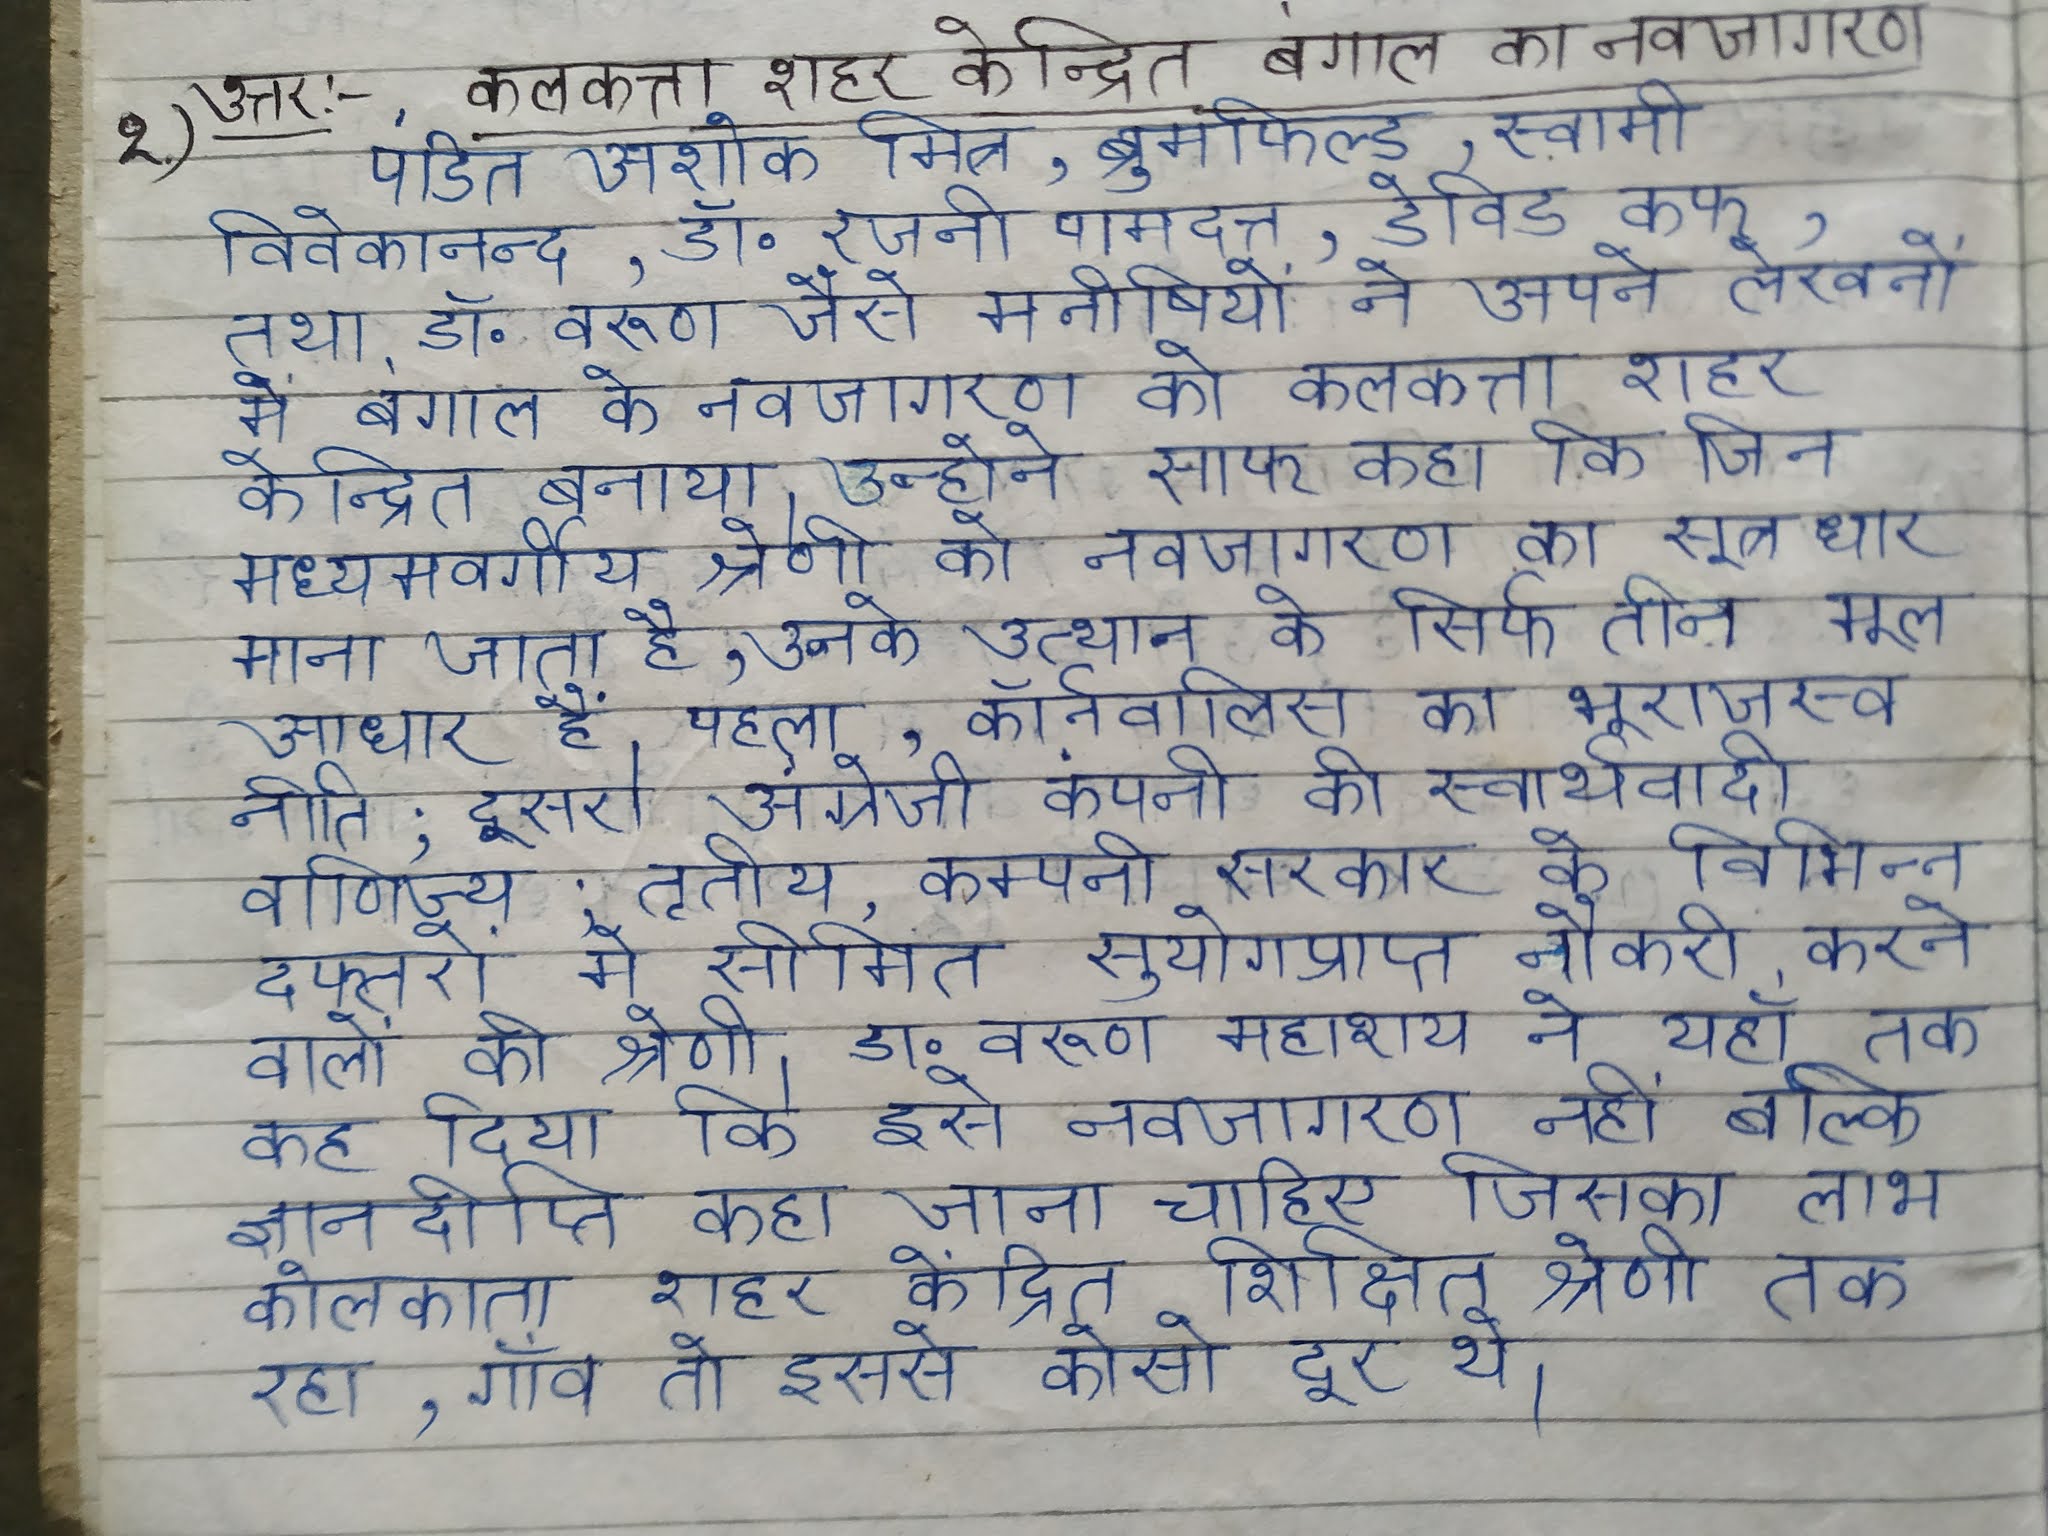 २.) उत्तर:- कलकत्ता शहर केन्द्रित बंगाल का नवजागरण
पंडित अशोक मित्र, ब्रुमफिल्ड, स्वामी
विवेकानन्द, डॉ॰ रजनी पामदत्त, डेविड कफ,
तथा डॉ॰ वरूण जैसे मनीषियों ने अपने लेखनों
में बंगाल के नवजागरण को कलकत्ता शहर
केन्द्रित बनाया। उन्होने साफ कहा कि जिन
मध्यमवर्गीय श्रेणी को नवजागरण का सूत्रधार
माना जाता है, उनके उत्थान के सिर्फ तीन मूल
आधार हैं। पहला, कॉर्नवालिस का भूराजस्व
नीति; दूसरा अंग्रेजी कंपनी की स्वार्थवादी
वाणिज्य; तृतीय, कम्पनी सरकार के विभिन्न
दफ्तरों में सीमित सुयोगप्राप्त नौकरी करने
वालों की श्रेणी। डा॰ वरूण महाशय ने यहाँ तक
कह दिया कि इसे नवजागरण नहीं बल्कि
ज्ञानदीप्ति कहा जाना चाहिए जिसका लाभ
कोलकाता शहर केंद्रित शिक्षित श्रेणी तक
रहा, गाँव तो इससे कोसो दूर थे।